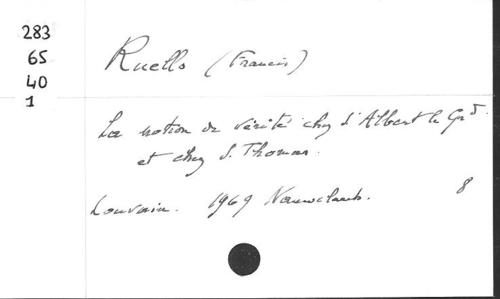 283
65
40
1
Ruello (Francis)
La notion de vérité chez S. Albert le Gr d
et chez S. Thomas.
Louvain. 1969 Nauwelaerts. 8